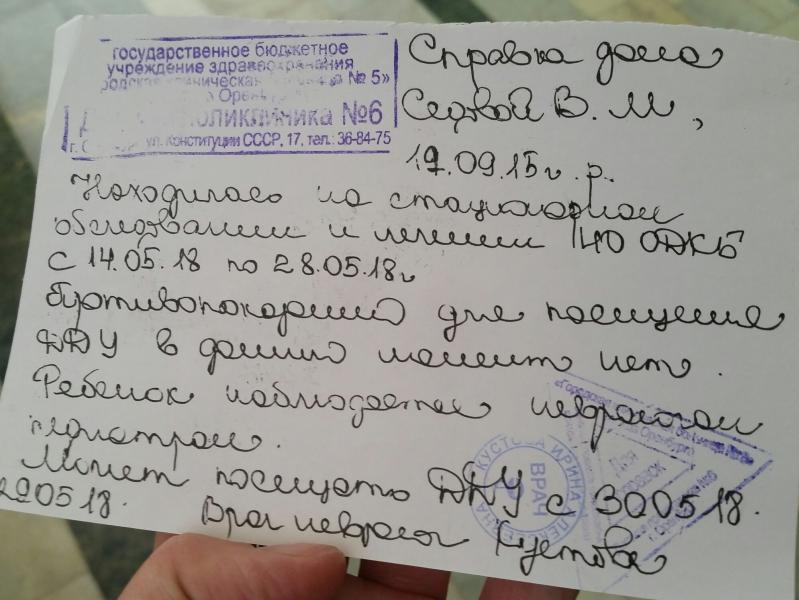 государственное бюджетное
учреждение здравоохранения
клиническая № 5»
поликлиника №6
ул. Конституции СССР, 17, тел.: 36-84-75
Справка дана
Седовой В. М,
19.09.15г. р.
Находилась на стационарном
обследовании и лечении ОДКБ
с 14.05.18 по 28.05.18г
Противопоказаний для посещения
ДДУ в данный момент нет.
Ребенок наблюдается неврологом
педиатром.
Может посещать ДДУ с 300518.
290518.
Врач невролог Кустова
КУСТОВА ИРИНА
ВРАЧ
Для